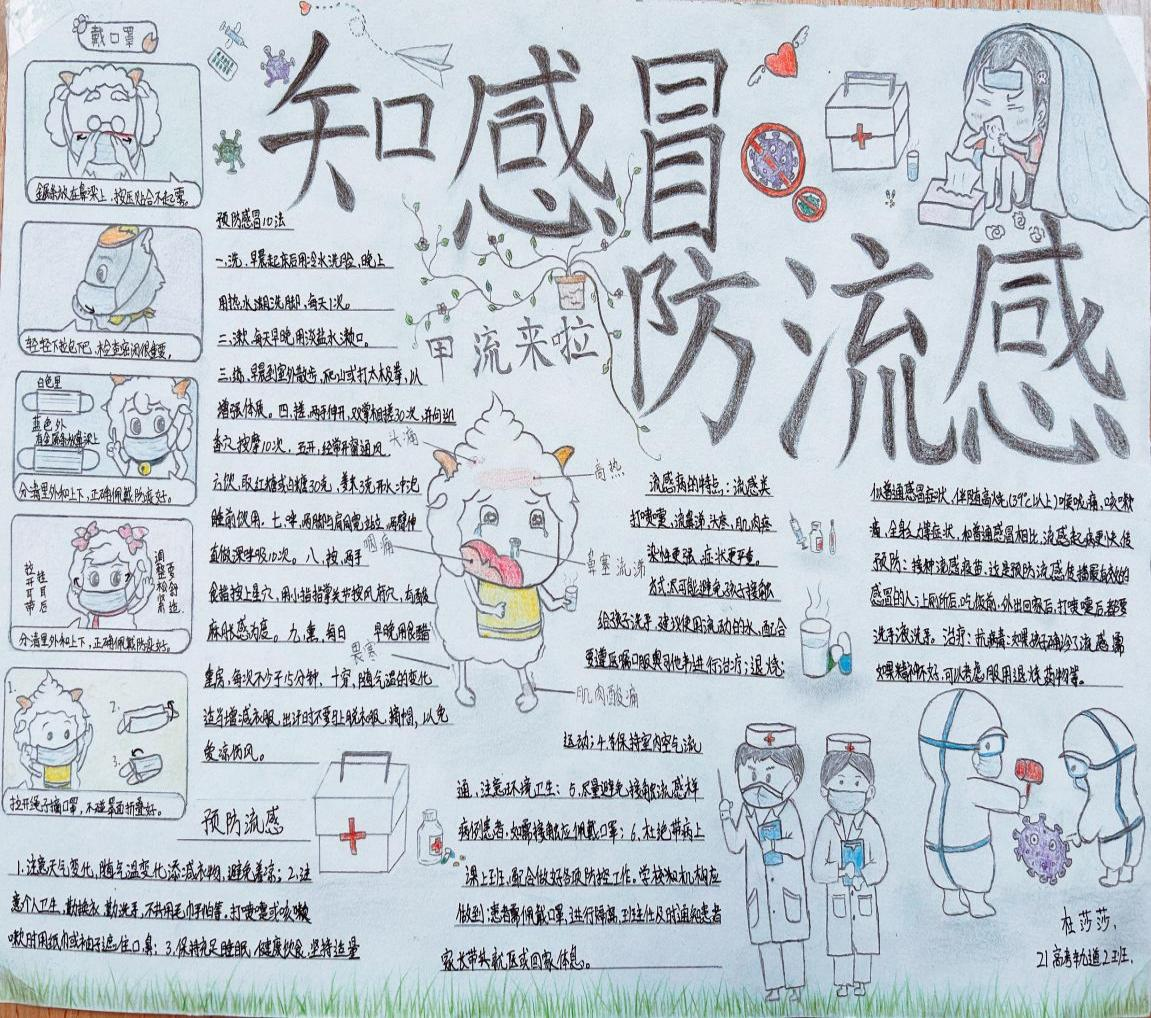 知感冒
防流感
甲流来啦
戴口罩
金属条放在鼻梁上，按压贴合不起雾。
轻轻下拉包下巴，检查密闭很重要。
白色里
蓝色外
有金属条放鼻梁上
分清里外和上下，正确佩戴防疫好。
拉开耳带
挂耳后
调整松紧
要舒适
分清里外和上下，正确佩戴防疫好。
1.
2.
3.
拉开绳子摘口罩，不碰罩面折叠好。
预防感冒10法
一、洗，早晨起床后用冷水洗脸，晚上
用热水泡洗脚，每天1次。
二、漱，每天早晚用淡盐水漱口。
三、练，早晨到室外散步，爬山或打太极拳，以
增强体质。四、搓，两手伸开，双掌相搓30次，并向迎
香穴按摩10次，五、开，经常开窗通风
六、饮，取红糖或白糖30克，姜末3克开水冲泡
睡前饮用。七、呼，两脚与肩同宽站立，两臂伸
直做深呼吸10次。八、按，两手
食指按上星穴，用小指指掌关节按风府穴，有酸
麻胀感为度。九、熏，每日 早晚用食醋
熏房，每次不少于15分钟，十穿，随气温的变化
适当增减衣服，出汗时不要马上脱衣服、摘帽，以免
受凉伤风。
头痛
高热
咽痛
鼻塞流涕
畏寒
肌肉酸痛
流感病的特点：流感类
打喷嚏、流鼻涕、头疼、肌肉疼
染性更强、症状更严重。
方式，尽可能避免孩子接触
给孩子洗手，建议使用流动的水，配合
要遵医嘱口服奥司他韦进行治疗；退烧：
似普通感冒症状，伴随高烧（39℃以上）喉咙痛，咳嗽
痛，全身乏力等症状，和普通感冒相比，流感起病更快传
预防：接种流感疫苗，这是预防流感传播最有效的
感冒的人；上厕所后、吃饭前、外出回家后、打喷嚏后都要
洗手液洗手。治疗：抗病毒：如果孩子确诊了流感，需
如果精神不好，可以考虑服用退烧药物等。
预防流感
1、注意天气变化，随气温变化添减衣物，避免着凉；2、注
意个人卫生，勤换衣，勤洗手，不共用毛巾手帕等，打喷嚏或咳嗽
嗽时用纸巾或袖子遮住口鼻；3、保持充足睡眠，健康饮食，坚持适量
运动；4、保持室内空气流
通，注意环境卫生；5、尽量避免接触流感样
病例患者，如需接触应佩戴口罩；6、杜绝带病上
课上班，配合做好各项防控工作。学校和机构应
做到：患者需佩戴口罩，进行隔离，班主任及时通知患者
家长带头就医或回家休息。
杜莎莎，
21高考轨道2班，